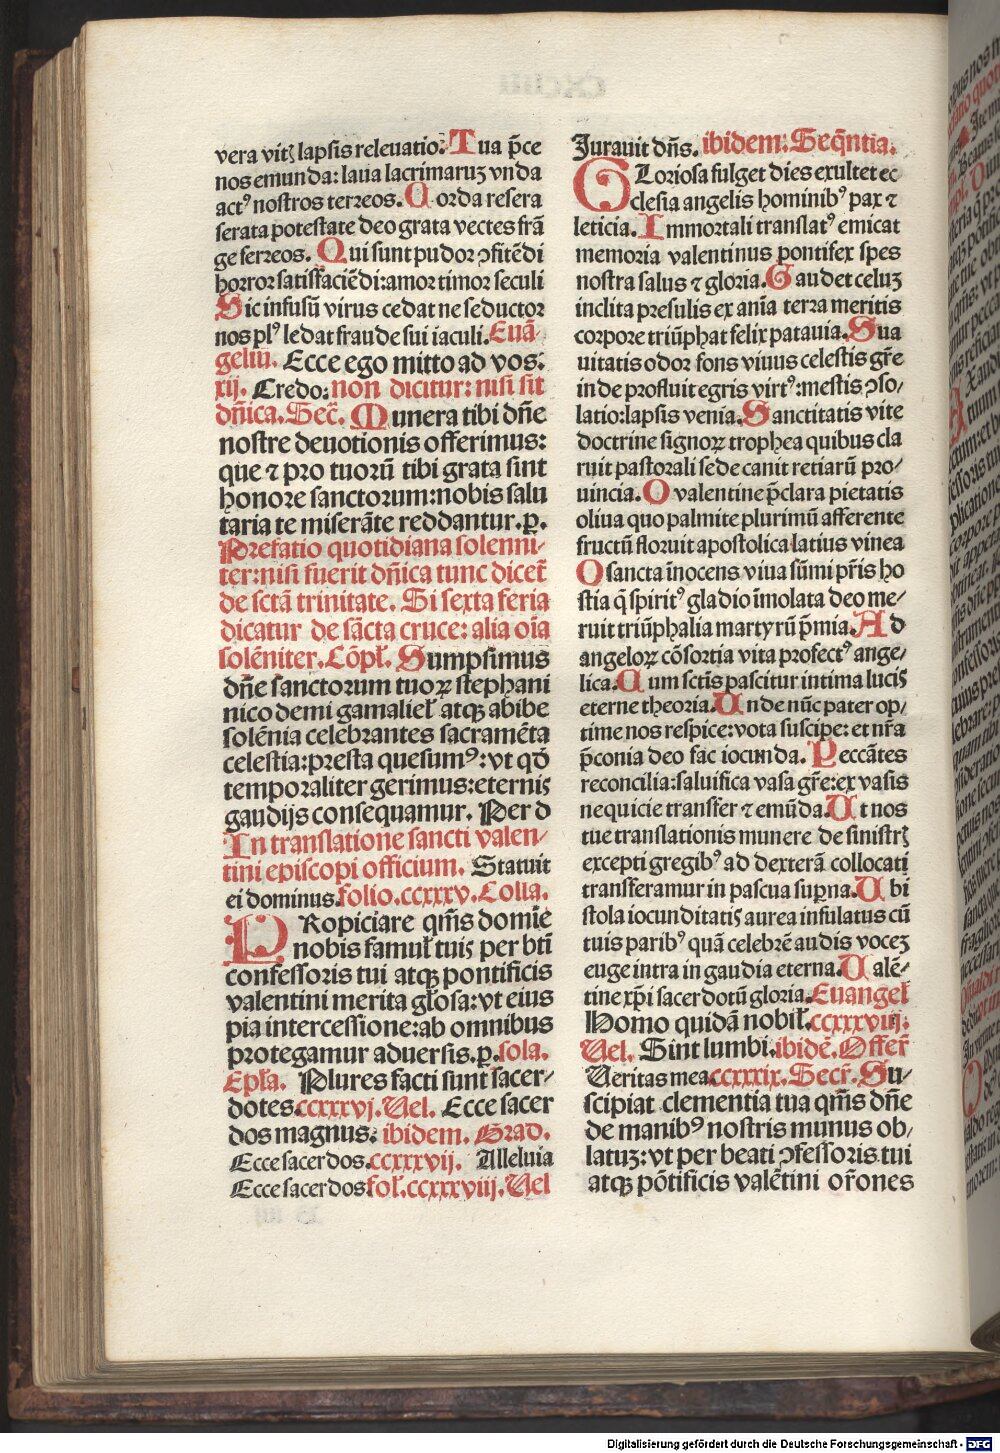 vera vitꝫ lapsis releuatio. Tua p̄ce
nos emunda: laua lacrimaruꝫ vnda
actꝰ nostros terreos. Corda resera
serata potestate deo grata vectes frā
ge ferreos. Qui sunt pudor ꝯfitēdi
horror satisfaciēdi: amor timor seculi
Sic infusū virus cedat ne seductor
nos plꝰ ledat fraude sui iaculi. Euā-
geliū. Ecce ego mitto ad vos.
xij. Credo: non dicitur: nisi sit
dn̄ica. Sec̄. Munera tibi dn̄e
nostre deuotionis offerimus:
que ⁊ pro tuorū tibi grata sint
honore sanctorum: nobis salu
taria te miserāte reddantur. p.
Prefatio quotidiana solenni-
ter: nisi fuerit dn̄ica tunc dicet̄
de sctā trinitate. Si sexta feria
dicatur de sācta cruce: alia oīa
solēniter. Cōpł. Sumpsimus
dn̄e sanctorum tuoꝝ stephani
nicodemi gamalieł atqꝫ abibe
solēnia celebrantes sacramēta
celestia: presta quesumꝰ: vt qd̄
temporaliter gerimus: eternis
gaudijs consequamur. Per d
In translatione sancti valen-
tini episcopi officium. Statuit
ei dominus. folio. ccxxxv. Colla.
PRopiciare qm̄s domīe
nobis famuł tuis per btī
confessoris tui atqꝫ pontificis
valentini merita głosa: vt eius
pia intercessione: ab omnibus
protegamur aduersis. p. sola.
Epła. Plures facti sunt sacer-
dotes. ccxxxvj. Uel. Ecce sacer
dos magnus. ibidem. Grad.
Ecce sacerdos. ccxxxvij. Alleluia
Ecce sacerdos foł. ccxxxviij. Uel
Jurauit dn̄s. ibidem. Seqn̄tia.
GLoriosa fulget dies exultet ec
clesia angelis hominibꝰ pax ⁊
leticia. Immortali translatꝰ emicat
memoria valentinus pontifex spes
nostra salus ⁊ gloria. Gaudet celuꝫ
inclita presulis ex anīa terra meritis
corpore triūphat felix patauia. Sua
uitatis odor fons viuus celestis gr̄e
inde profluit egris virtꝰ: mestis ꝯso-
latio: lapsis venia. Sanctitatis vite
doctrine signoꝝ trophea quibus cla
ruit pastorali sede canit retiarū pro-
uincia. O valentine p̄clara pietatis
oliua quo palmite plurimū afferente
fructū floruit apostolica latius vinea
O sancta īnocens viua sūmi pr̄is ho
stia q̄ spiritꝰ gladio īmolata deo me-
ruit triūphalia martyrū p̄mia. Ad
angeloꝝ cōsortia vita profectꝰ ange-
lica. Cum sctīs pascitur intima lucis
eterne theoria. Unde nūc pater op-
time nos respice: vota suscipe: et nr̄a
p̄conia deo fac iocunda. Peccātes
reconcilia: saluifica vasa gr̄e: ex vasis
nequicie transfer ⁊ emūda. Ut nos
tue translationis munere de sinistrꝭ
excepti gregibꝰ ad dexterā collocati
transferamur in pascua sup̄na. Ubi
stola iocunditatis aurea infulatus cū
tuis paribꝰ quā celebrē audis voceꝫ
euge intra in gaudia eterna. Ualē-
tine xp̄i sacerdotū gloria. Euangeł
Homo quidā nobił. ccxxxviij.
Uel. Sint lumbi. ibidē. Offer̄
Ueritas mea ccxxxix. Secr̄. Su-
scipiat clementia tua qm̄s dn̄e
de manibꝰ nostris munus ob-
latuꝫ: vt per beati ꝯfessoris tui
atqꝫ pōtificis valētini or̄ones
Digitalisierung gefördert durch die Deutsche Forschungsgemeinschaft - DFG